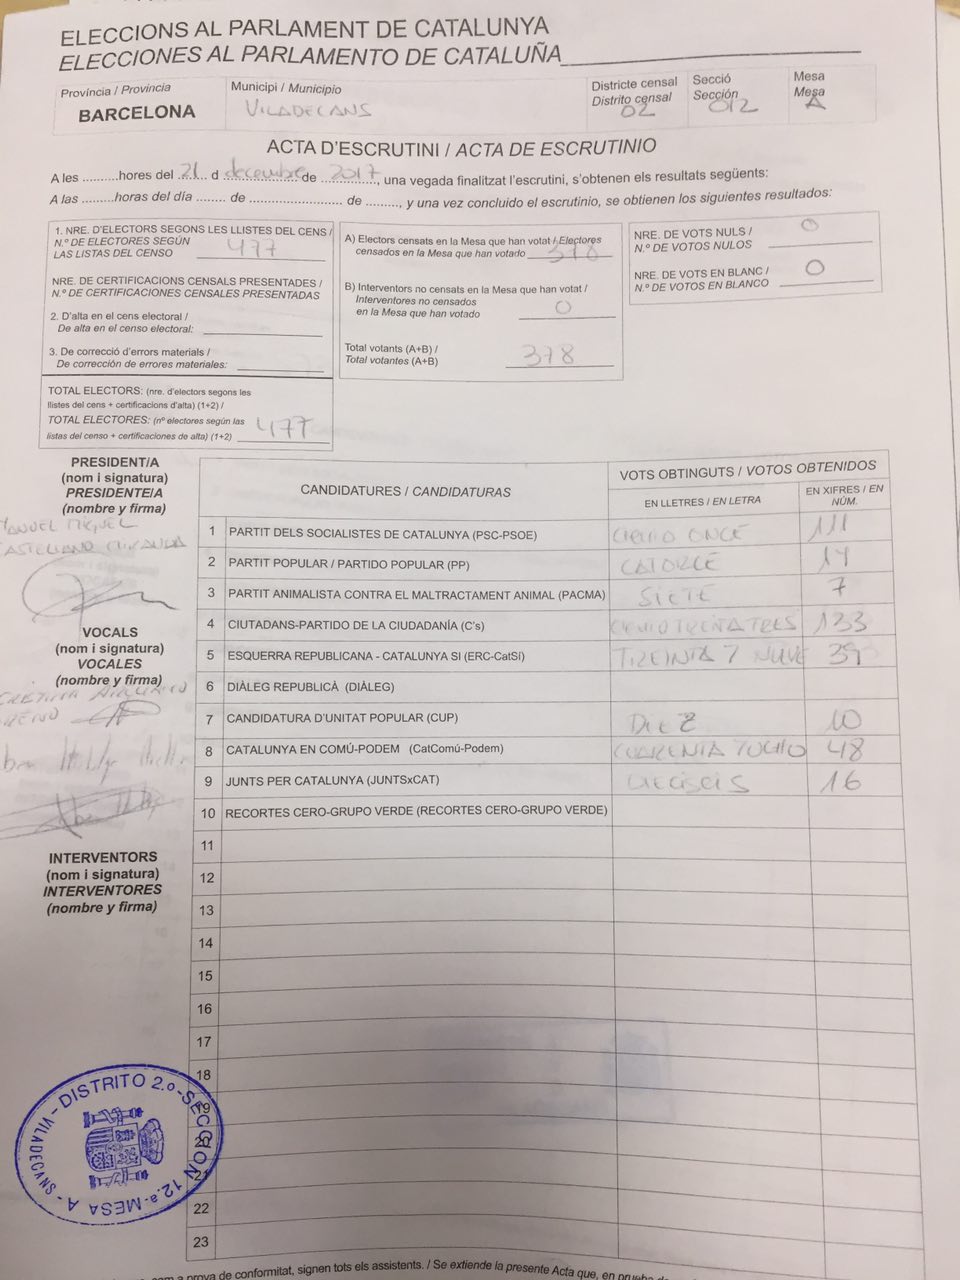 ELECCIONS AL PARLAMENT DE CATALUNYA
ELECCIONES AL PARLAMENTO DE CATALUÑA
Província / Provincia
BARCELONA
Municipi / Municipio
VILADECANS
Districte censal
Distrito censal
02
Secció
Sección
012
Mesa
Mesa
A
ACTA D'ESCRUTINI / ACTA DE ESCRUTINIO
A les ..........hores del ..21.. d decembre de ..2017.., una vegada finalitzat l'escrutini, s'obtenen els resultats següents:
A las .........horas del día ........ de .......................... de ........., y una vez concluido el escrutinio, se obtienen los siguientes resultados:
1. NRE. D'ELECTORS SEGONS LES LLISTES DEL CENS /
N.º DE ELECTORES SEGÚN
LAS LISTAS DEL CENSO 477
NRE. DE CERTIFICACIONS CENSALS PRESENTADES /
N.º DE CERTIFICACIONES CENSALES PRESENTADAS
2. D'alta en el cens electoral /
De alta en el censo electoral:
3. De correcció d'errors materials /
De corrección de errores materiales:
TOTAL ELECTORS: (nre. d'electors segons les
llistes del cens + certificacions d'alta) (1+2) /
TOTAL ELECTORES: (nº electores según las
listas del censo + certificaciones de alta) (1+2) 477
A) Electors censats en la Mesa que han votat / Electores
censados en la Mesa que han votado 378
B) Interventors no censats en la Mesa que han votat /
Interventores no censados
en la Mesa que han votado 0
Total votants (A+B) /
Total votantes (A+B) 378
NRE. DE VOTS NULS /
N.º DE VOTOS NULOS 0
NRE. DE VOTS EN BLANC /
N.º DE VOTOS EN BLANCO 0
PRESIDENT/A
(nom i signatura)
PRESIDENTE/A
(nombre y firma)
MANUEL MIGUEL
CASTELLANO MIRANDA
VOCALS
(nom i signatura)
VOCALES
(nombre y firma)
INTERVENTORS
(nom i signatura)
INTERVENTORES
(nombre y firma)
CANDIDATURES / CANDIDATURAS
VOTS OBTINGUTS / VOTOS OBTENIDOS
EN LLETRES / EN LETRA
EN XIFRES / EN NÚM.
1 PARTIT DELS SOCIALISTES DE CATALUNYA (PSC-PSOE) CIENTO ONCE 111
2 PARTIT POPULAR / PARTIDO POPULAR (PP) CATORCE 14
3 PARTIT ANIMALISTA CONTRA EL MALTRACTAMENT ANIMAL (PACMA) SIETE 7
4 CIUTADANS-PARTIDO DE LA CIUDADANÍA (C's) CIENTO TREINTA TRES 133
5 ESQUERRA REPUBLICANA - CATALUNYA SI (ERC-CatSí) TREINTA Y NUEVE 39
6 DIÀLEG REPUBLICÀ (DIÀLEG)
7 CANDIDATURA D'UNITAT POPULAR (CUP) DIEZ 10
8 CATALUNYA EN COMÚ-PODEM (CatComú-Podem) CUARENTA Y OCHO 48
9 JUNTS PER CATALUNYA (JUNTSxCAT) DIECISEIS 16
10 RECORTES CERO-GRUPO VERDE (RECORTES CERO-GRUPO VERDE)
11
12
13
14
15
16
17
18
19
20
21
22
23
VILADECANS - DISTRITO 2.º - SECCION 12.ª - MESA A
a prova de conformitat, signen tots els assistents. / Se extiende la presente Acta que, en